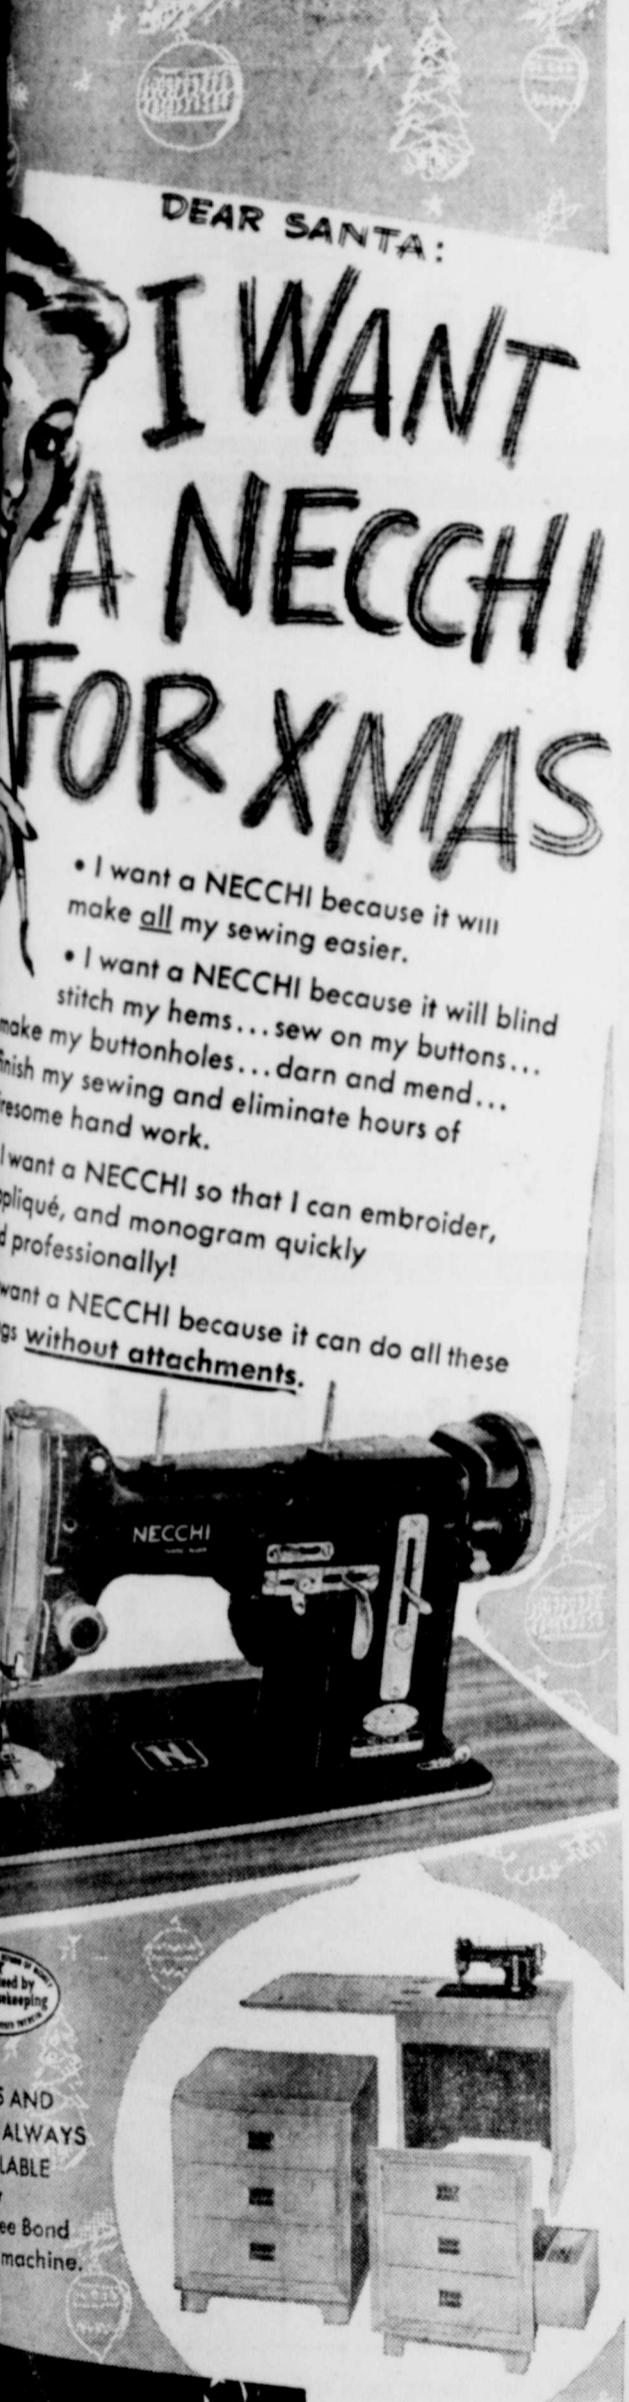 DEAR SANTA:
I WANT
A NECCHI
FOR XMAS
• I want a NECCHI because it will
make all my sewing easier.
• I want a NECCHI because it will blind
stitch my hems... sew on my buttons...
make my buttonholes... darn and mend...
finish my sewing and eliminate hours of
resome hand work.
I want a NECCHI so that I can embroider,
pliqué, and monogram quickly
d professionally!
want a NECCHI because it can do all these
gs without attachments.
NECCHI
N
eed by
sekeeping
S AND
ALWAYS
LABLE
ee Bond
machine.